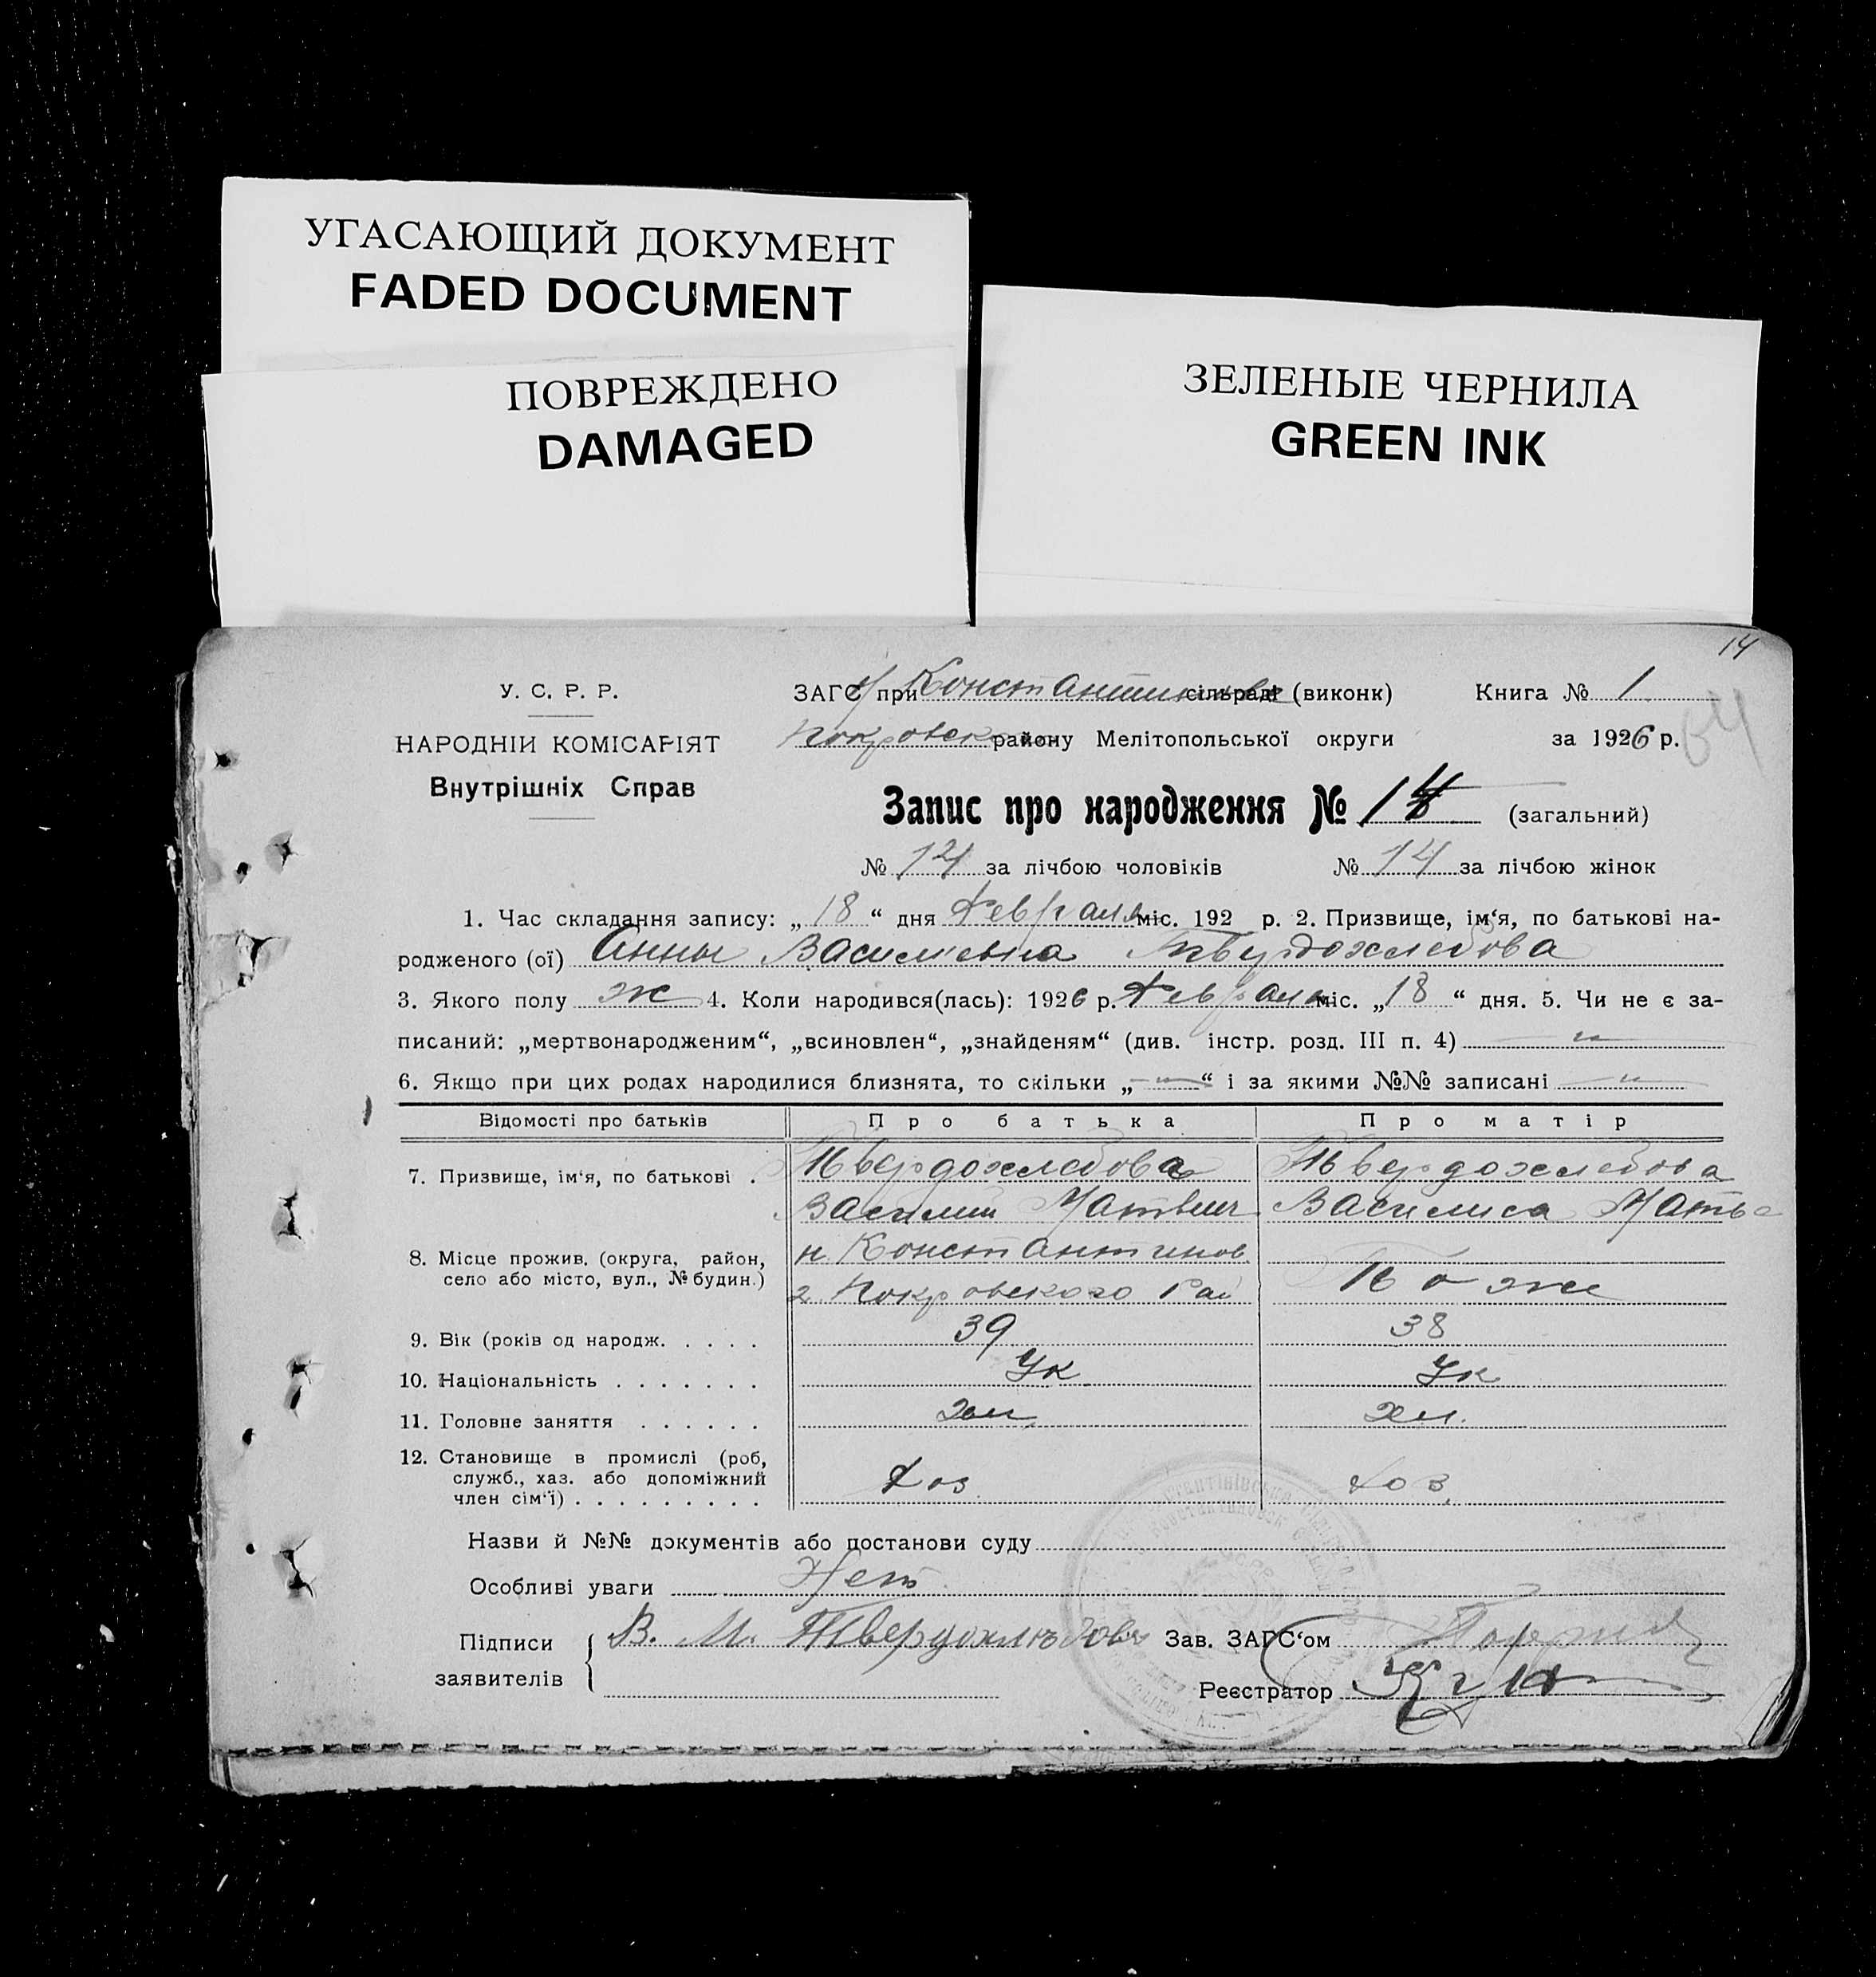 УГАСАЮЩИЙ ДОКУМЕНТ
FADED DOCUMENT
ПОВРЕЖДЕНО
DAMAGED
ЗЕЛЕНЫЕ ЧЕРНИЛА
GREEN INK
14
У. С. Р. Р.
НАРОДНІЙ КОМІСАРІЯТ
Внутрішніх Справ
ЗАГС при Константиновке сільраді (виконк) Книга № 1
64
Покровского району Мелітопольської округи за 1926 р.
Запис про народження № 14 (загальний)
№ 14 за лічбою чоловіків № 14 за лічбою жінок
1. Час складання запису: „18“ дня Февраля міс. 192 р. 2. Призвище, ім‘я, по батькові на-
родженого (ої) Анны Васильевна Твердохлебова
3. Якого полу ж 4. Коли народився(лась): 1926 р. Февраля міс. „18“ дня. 5. Чи не є за-
писаний: „мертвонародженим“, „всиновлен“, „знайденям“ (див. інстр. розд. III п. 4) — „ —
6. Якщо при цих родах народилися близнята, то скільки „— „ —“ і за якими №№ записані — „ —
Відомості про батьків Про батька Про матір
7. Призвище, ім‘я, по батькові . Твердохлебова Твердохлебова
Василий Матвеич Василиса Мать
8. Місце прожив. (округа, район, село або місто, вул., № будин.) н. Константинов
Покровского Рай Тоже
9. Вік (років од народж. . . . . 39 38
10. Національність . . . . . . . Ук Ук
11. Головне заняття . . . . . .
12. Становище в промислі (роб, служб., хаз. або допоміжний член сім‘ї) . . . . . . . . . Хоз. Хоз.
Назви й №№ документів або постанови суду
Особливі уваги Нет
Підписи заявителів В. М. Твердохлѣбовъ Зав. ЗАГС‘ом
Реєстратор